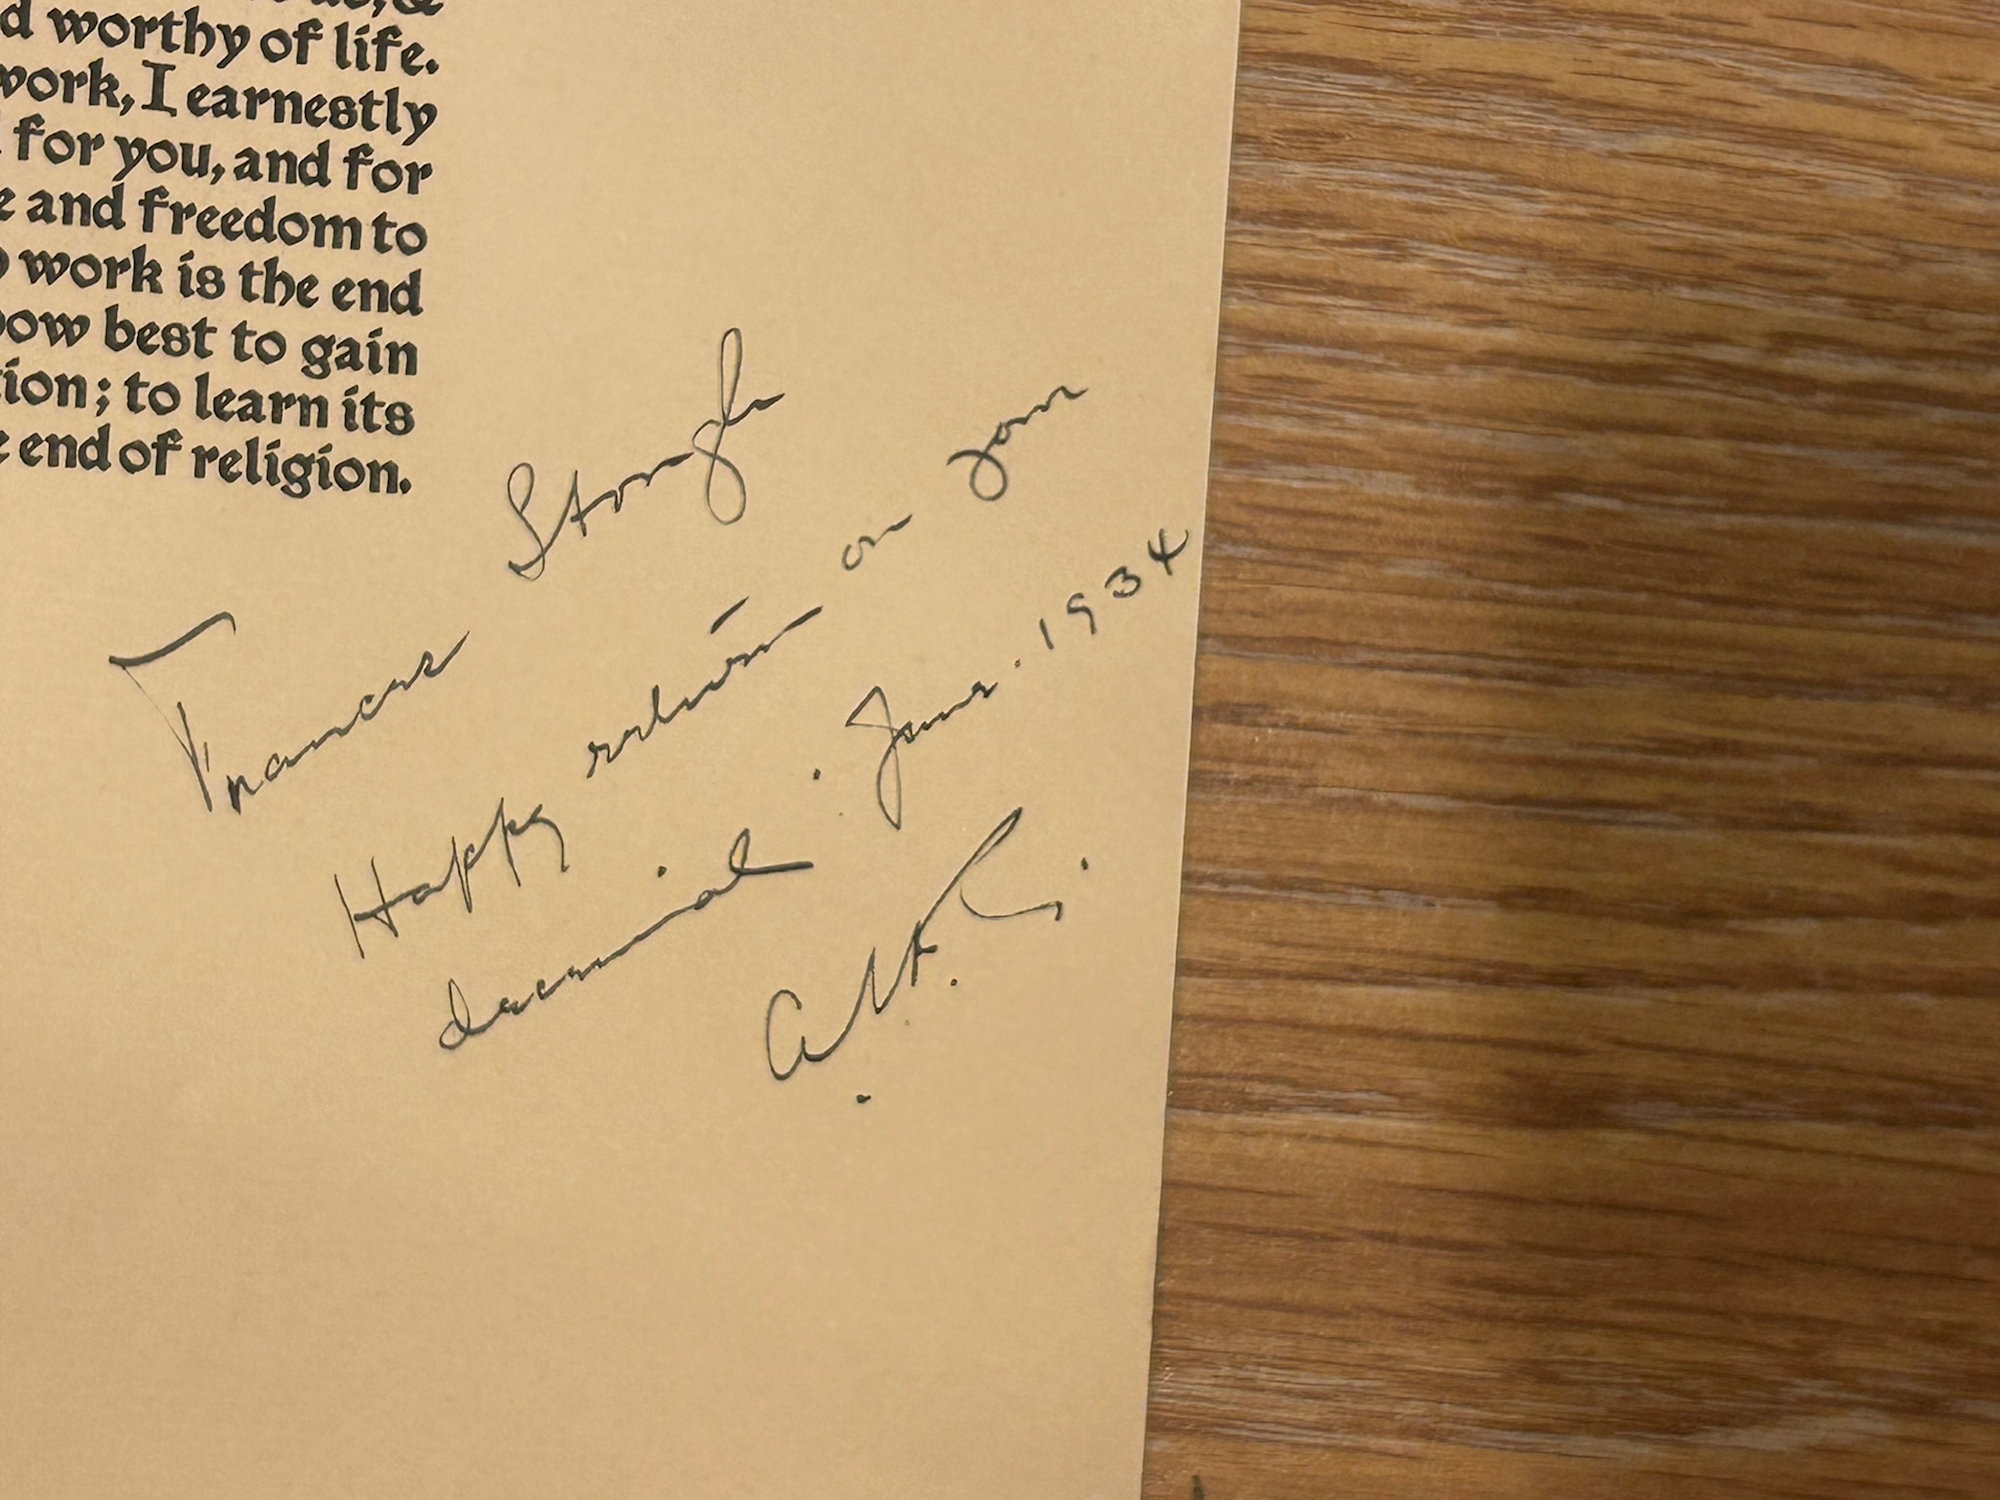 d worthy of life.
work, I earnestly
for you, and for
e and freedom to
work is the end
how best to gain
tion; to learn its
e end of religion.
Frances Stough
Happy return on your
decennial. June. 1934